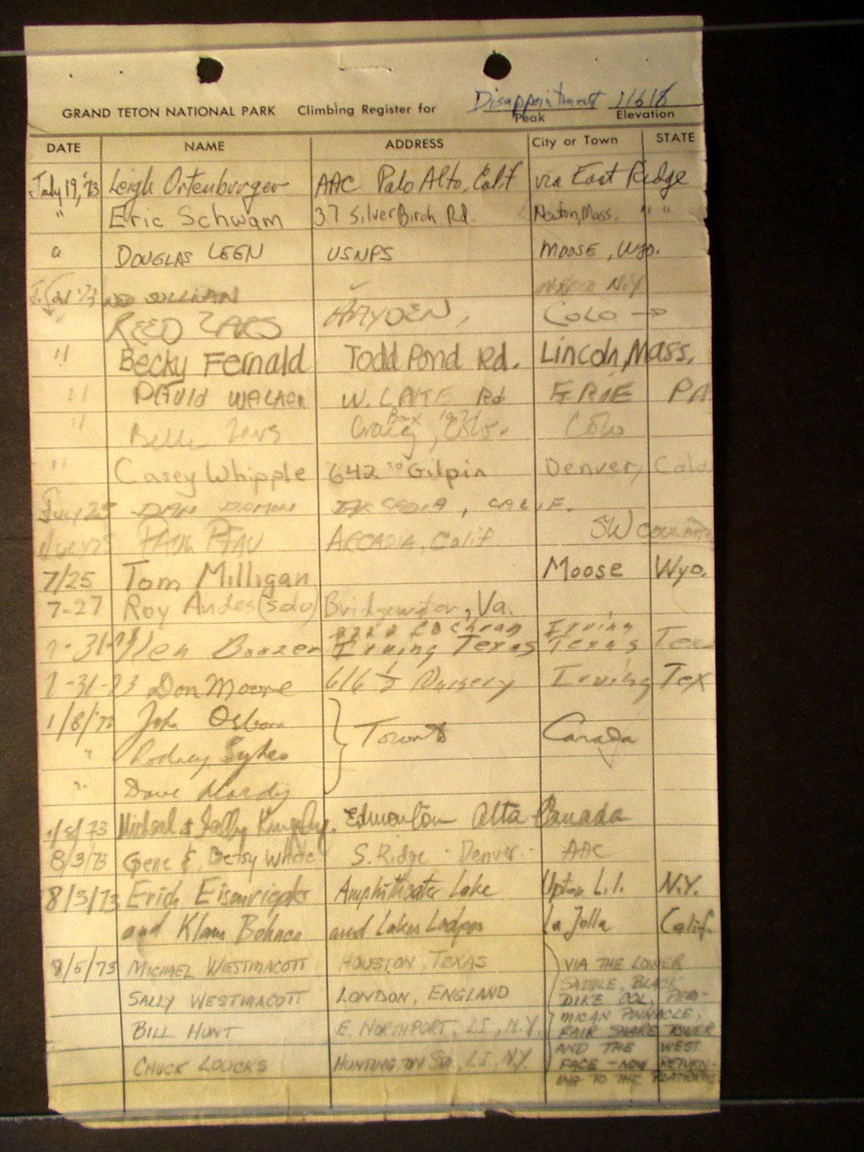 Disappointment 11618
GRAND TETON NATIONAL PARK Climbing Register for Peak Elevation
DATE NAME ADDRESS City or Town STATE
July 19,'73 Leigh Ortenburger AAC Palo Alto, Calif via East Ridge
" Eric Schwam 37 Silver Birch Rd. Newton, Mass. " "
DOUGLAS LEEN USNPS MOOSE, Wyo.
SULLIVAN
REED ZARS HAYDEN, COLO →
" Becky Fernald Todd Pond Rd. Lincoln, Mass.
" DAVID WALKER W. LAKE Rd ERIE PA
" Zars Box Craig, Colo. Colo
" Casey Whipple 642 Gilpin Denver, Colo
July 25 DAN DAMON ARCADIA, CALIF.
July 25 PAUL ARCADIA, Calif SW
7/25 Tom Milligan Moose Wyo.
7-27 Roy Andes (solo) Bridgewater, Va.
Cochran Irving
7-31-73 Glen Boazer Irving Texas Texas Tex
7-31-73 Don Moore 616 ½ Nursery Irving Tex
1/8/73 John Toronto Canada
" Rodney Sykes
" Dave Hardy
1/8/73 Michael & Sally Edmonton Alta Canada
8/3/73 Gene & Betsy White S. Ridge - Denver - AAC
8/3/73 Erich Amphitheater Lake Upton L.I. N.Y.
and Klaus and Lakes Ledges La Jolla Calif.
8/5/73 MICHAEL WESTMACOTT HOUSTON, TEXAS VIA THE LOWER
SADDLE, BLACK
SALLY WESTMACOTT LONDON, ENGLAND DIKE COL, PEM-
MICAN PINNACLE,
BILL HUNT E. NORTHPORT, LI, N.Y. FAIR SHARE TOWER
AND THE WEST
CHUCK LOUCKS HUNTINGTON STA, LI, N.Y. FACE - NOW RETURN-
ING TO THE PLATFORMS